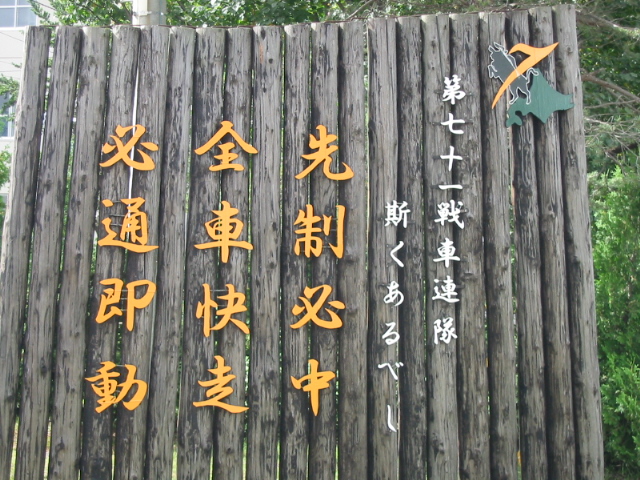 第七十一戦車連隊
斯くあるべし
先制必中
全車快走
必通即動
7